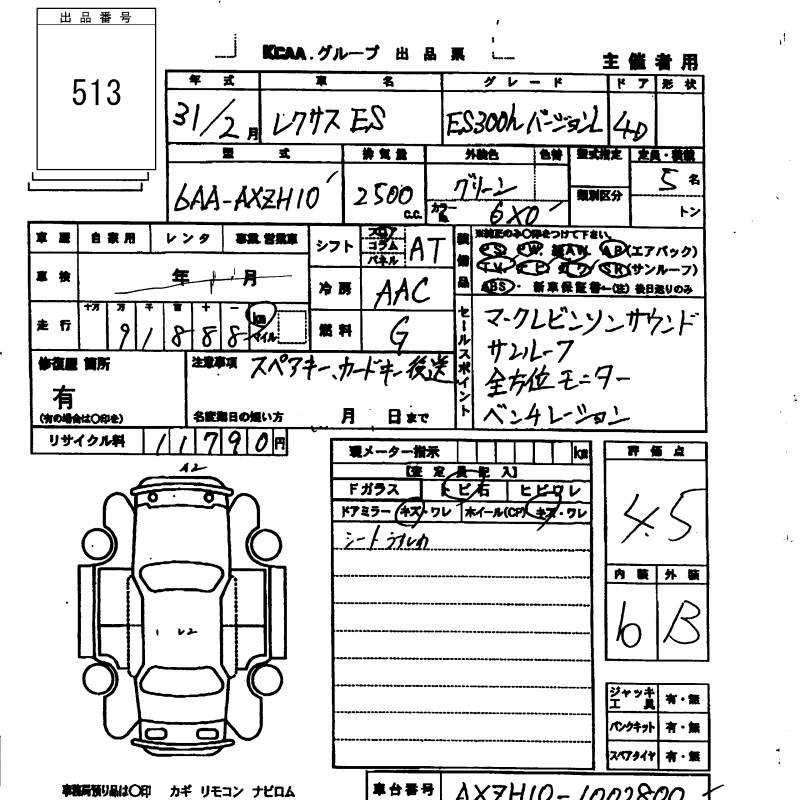 出品番号
513
KCAA.グループ 出品票
主催者用
年式 車名 グレード ドア 形状
31/2月 レクサス ES ES300h バージョンL 4D
型式 排気量 外装色 色替 型式指定 定員・積載
6AA-AXZH10 2500 C.C. グリーン 類別区分 5名
カラーNo. 6X0 トン
車歴 自家用 レンタ 事業.営業車
シフト フロア コラム パネル AT
装備品 ※純正のみ○印をつけて下さい。
PS PW 純AW AB(エアバック)
TV ナビ カワ SR(サンルーフ)
ABS・ 新車保証書←(注)後日送りのみ
車検 年 月
冷房 AAC
走行 十万 万 千 百 十 一
91888 km マイル
燃料 G
セールスポイント マークレビンソンサウンド
サンルーフ
全方位モニター
ベンチレーション
修復歴 箇所
有
(有の場合は○印を)
注意事項 スペアキー、カードキー後送
名変期日の短い方 月 日まで
リサイクル料 11790円
現メーター指示 km
【査定員記入】
Fガラス トビ石 ヒビワレ
ドアミラー キズ・ワレ ホイール(CP) キズ・ワレ
シートうすレカ
評価点
4.5
内装 外装
6 B
A2
レ2
ジャッキ工具 有・無
パンクキット 有・無
スペアタイヤ 有・無
事務局預り品は○印 カギ リモコン ナビロム
車台番号 AXZH10-1002800